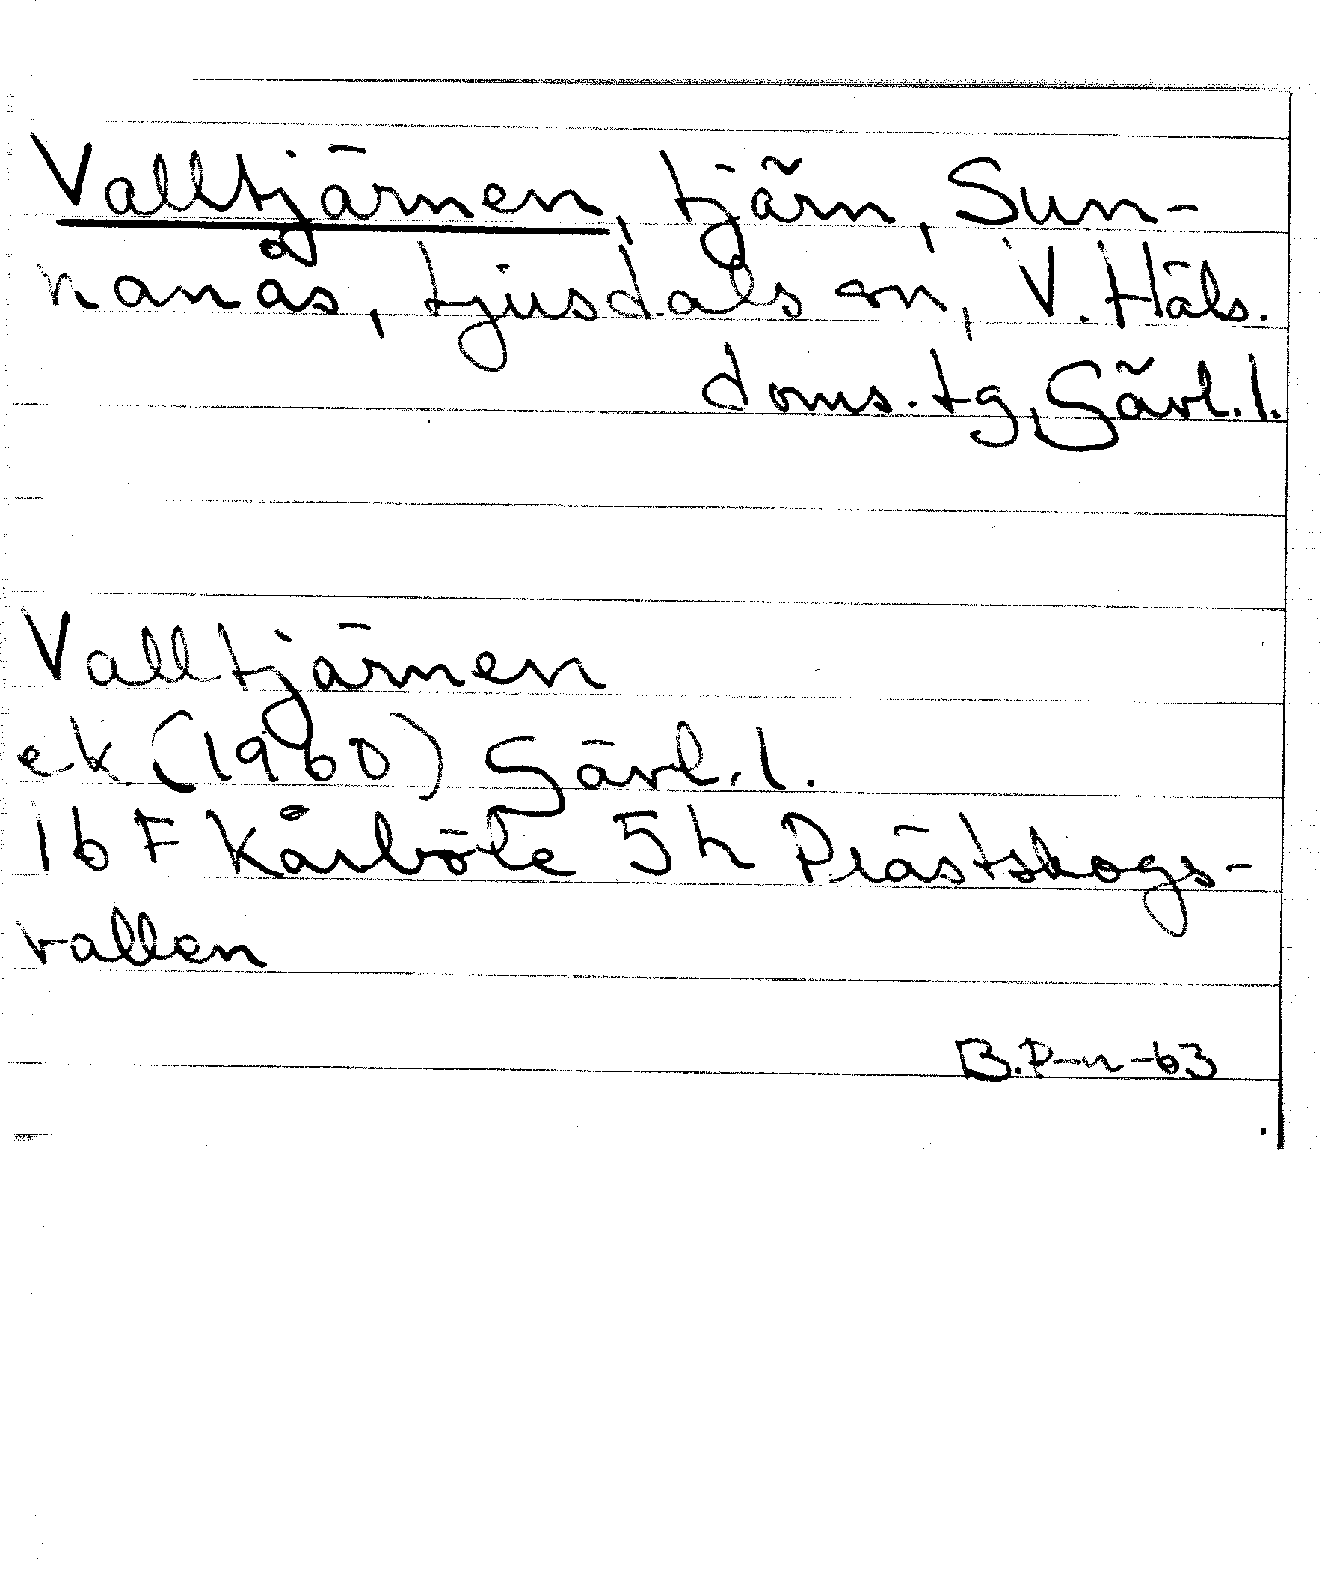 Valltjärnen, tjärn, Sun-
nanås, Ljusdals sn, V. Häls.
doms. tg, Gävl. l.
Valltjärnen
ek (1960) Gävl. l.
16 F Kårböle 5 h Prästskogs-
vallen
B. P-n -63